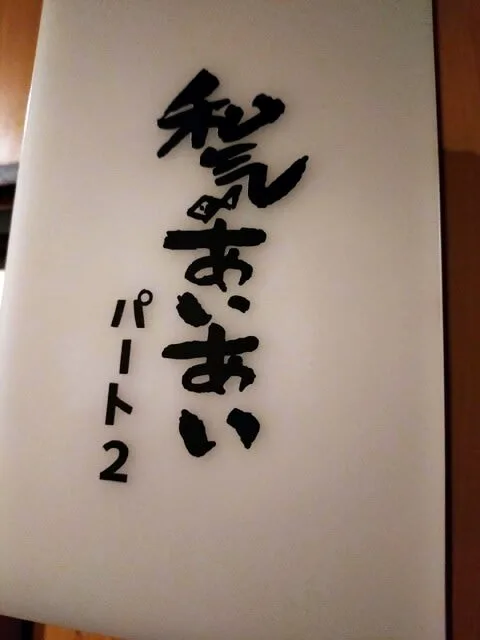 和気のあいあい
パート2